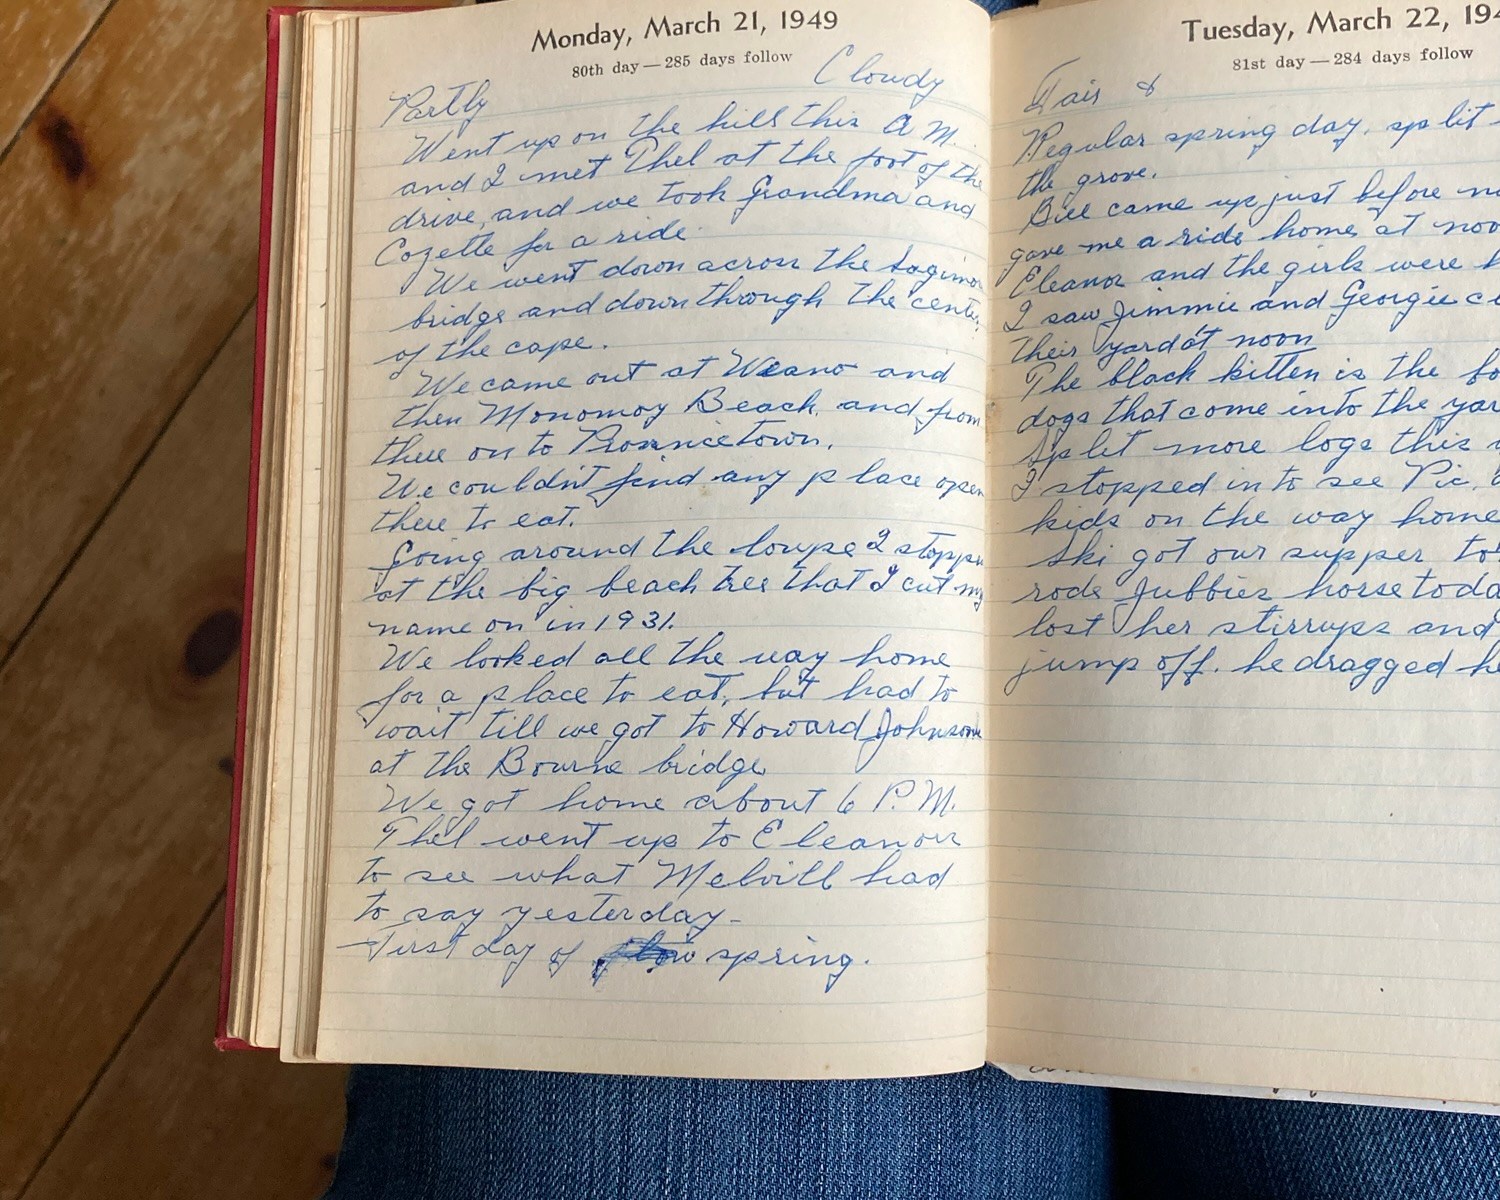 Monday, March 21, 1949
80th day — 285 days follow
Partly Cloudy
Went up on the hill this A M.
and I met Thel at the foot of the
drive, and we took Grandma and
Cozette for a ride.
We went down across the
bridge and down through the
of the cape.
We came out at and
then Monomoy Beach, and from
there on to
We couldn't find any place open
there to eat.
Going around the I
at the big beach tree that I cut my
name on in 1931.
We looked all the way home
for a place to eat, but had to
wait till we got to Howard Johnsons
at the Bourne bridge
We got home about 6 P.M.
Thel went up to
to see what had
to say yesterday-
First day of spring.
Tuesday, March 22, 194
81st day — 284 days follow
Fair &
Regular spring day. split
the grove.
Bill came up just before
gave me a ride home at
Eleanor and the girls were
I saw Jimmie and Georgie
their yard at noon
The black kitten is the
dogs that come into the
Split more logs this
I stopped in to see Pic.
kids on the way home
Ski got our supper
rode Jubbies horse
lost her stirrups and
jump off. he dragged